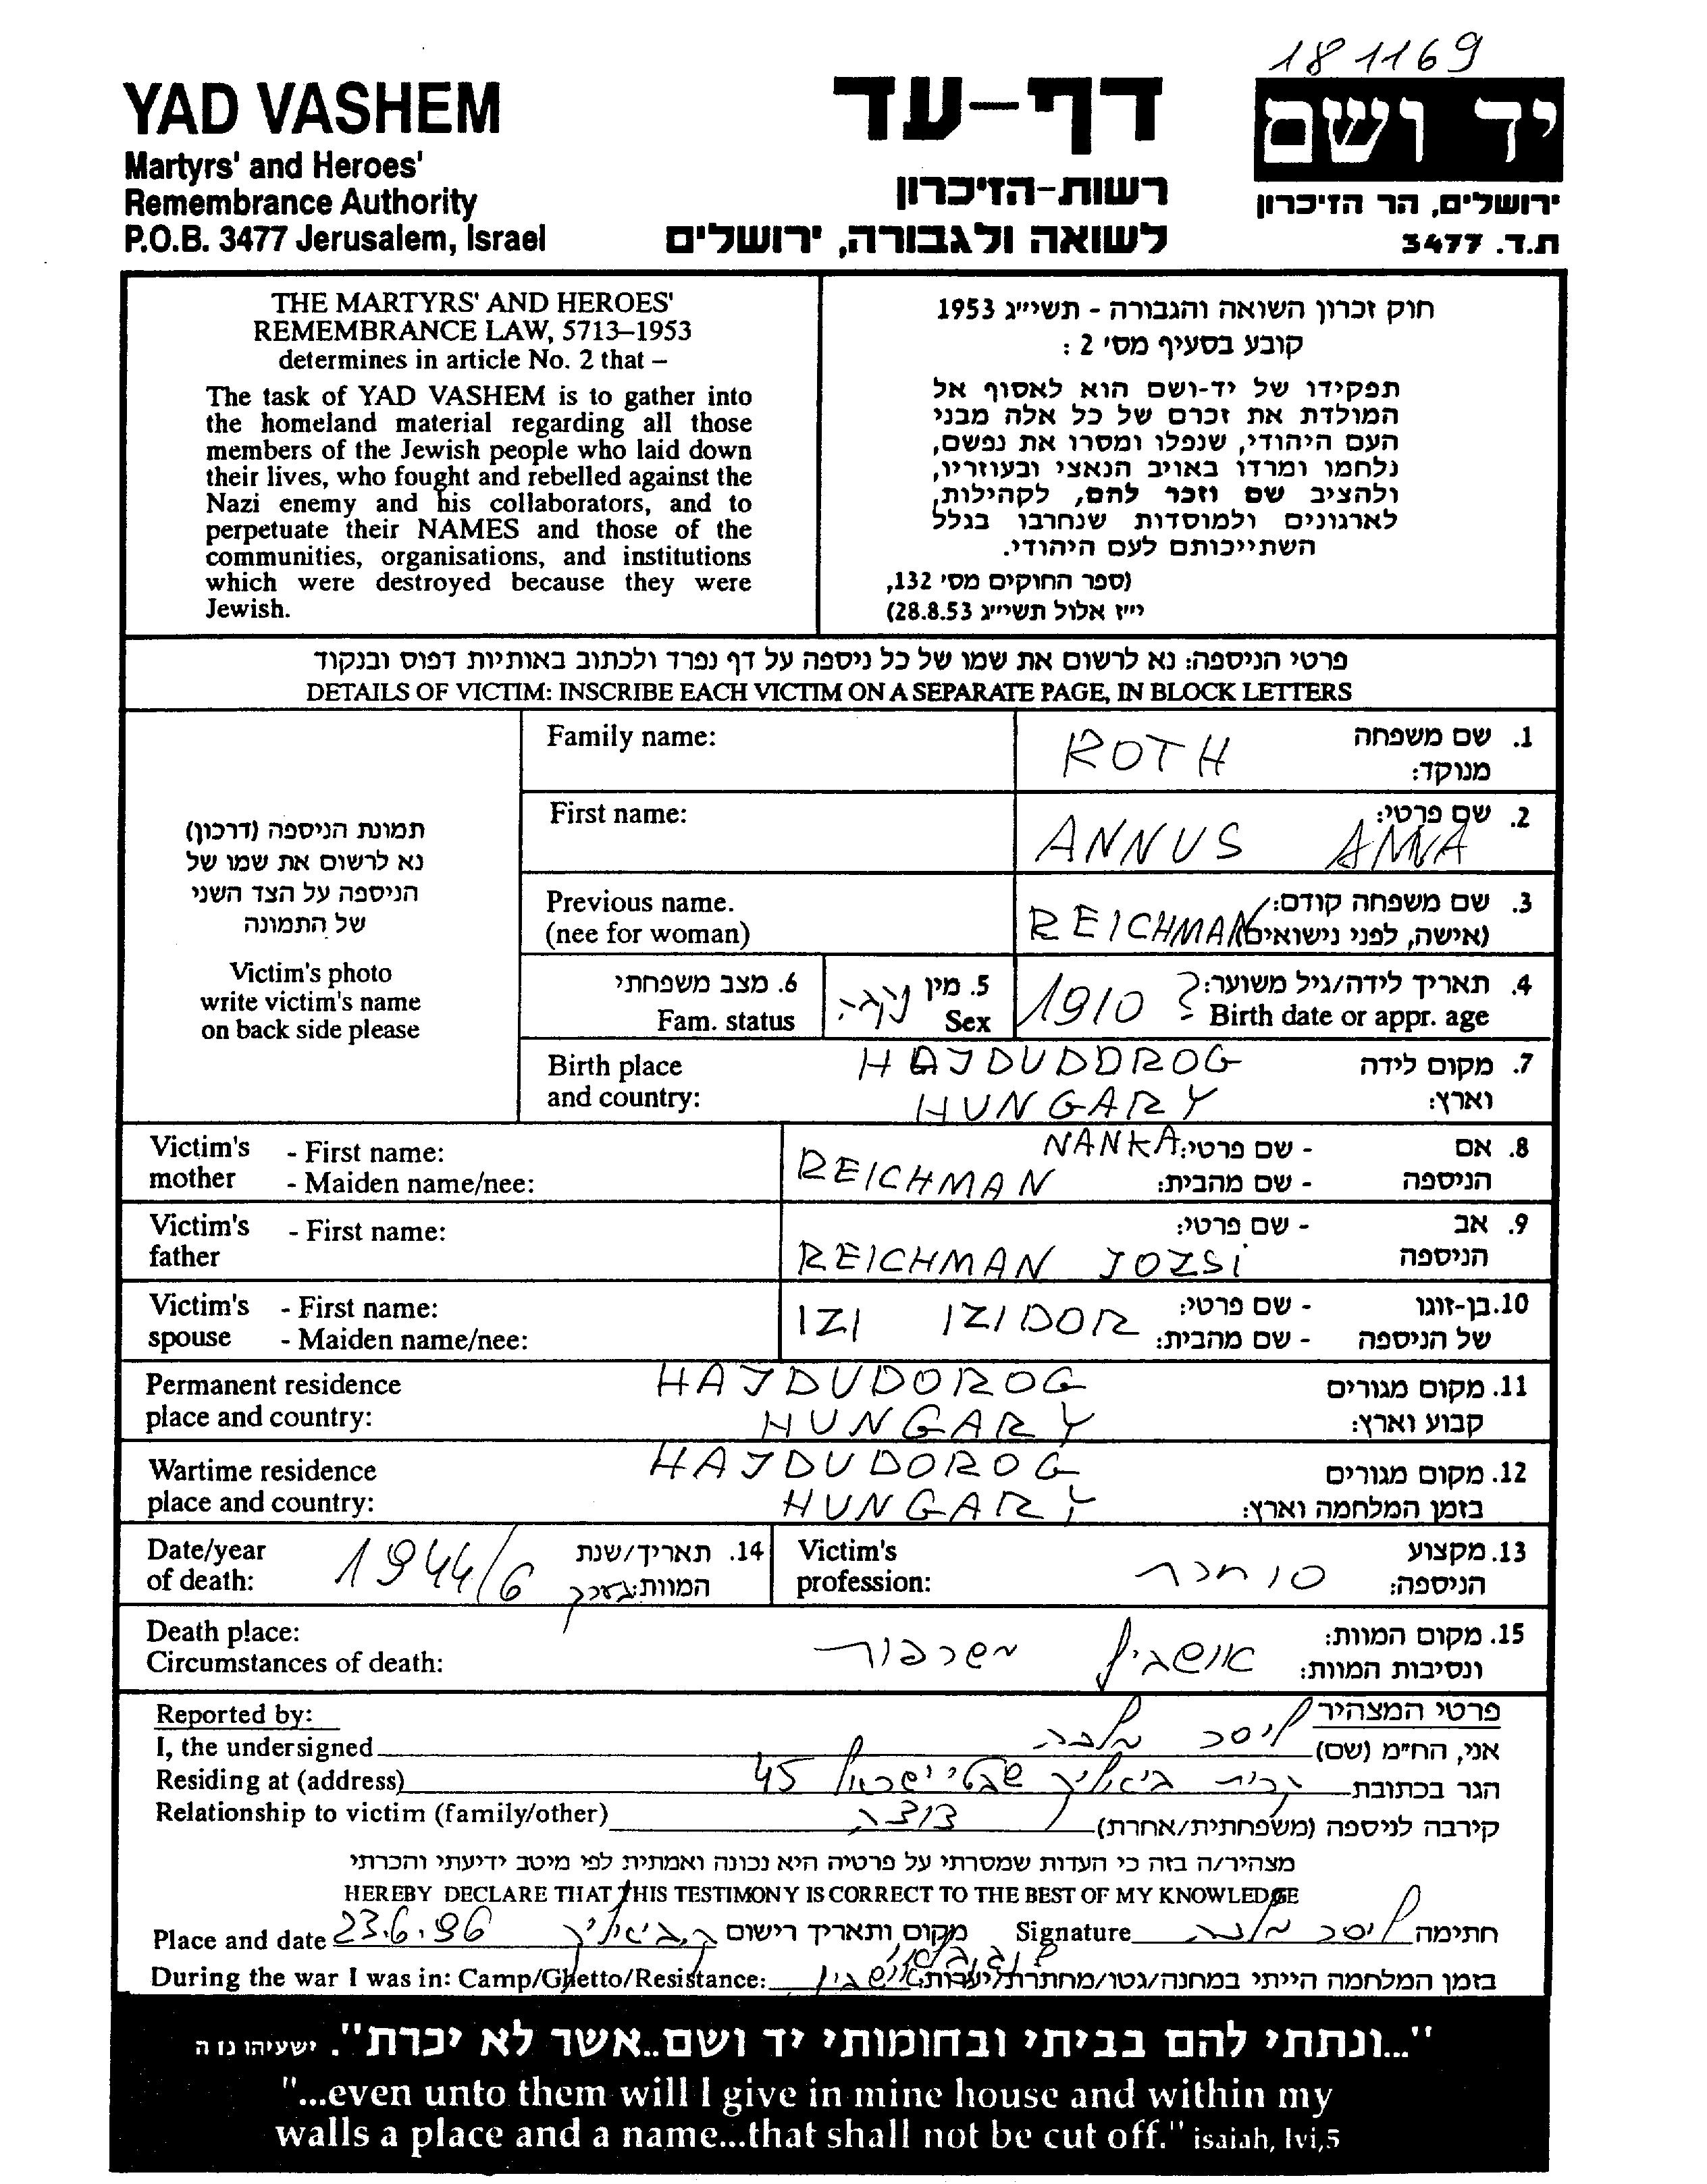 181169
YAD VASHEM
Martyrs' and Heroes'
Remembrance Authority
P.O.B. 3477 Jerusalem, Israel
דף-עד
רשות-הזיכרון
לשואה ולגבורה, ירושלים
יד ושם
ירושלים, הר הזיכרון
ת.ד. 3477
THE MARTYRS' AND HEROES'
REMEMBRANCE LAW, 5713–1953
determines in article No. 2 that –
The task of YAD VASHEM is to gather into
the homeland material regarding all those
members of the Jewish people who laid down
their lives, who fought and rebelled against the
Nazi enemy and his collaborators, and to
perpetuate their NAMES and those of the
communities, organisations, and institutions
which were destroyed because they were
Jewish.
חוק זכרון השואה והגבורה - תשי״ג 1953
קובע בסעיף מס׳ 2 :
תפקידו של יד-ושם הוא לאסוף אל
המולדת את זכרם של כל אלה מבני
העם היהודי, שנפלו ומסרו את נפשם,
נלחמו ומרדו באויב הנאצי ובעוזריו,
ולהציב שם וזכר להם, לקהילות,
לארגונים ולמוסדות שנחרבו בגלל
השתייכותם לעם היהודי.
(ספר החוקים מס׳ 132,
י״ז אלול תשי״ג 28.8.53)
פרטי הניספה: נא לרשום את שמו של כל ניספה על דף נפרד ולכתוב באותיות דפוס ובנקוד
DETAILS OF VICTIM: INSCRIBE EACH VICTIM ON A SEPARATE PAGE, IN BLOCK LETTERS
תמונת הניספה (דרכון)
נא לרשום את שמו של
הניספה על הצד השני
של התמונה
Victim's photo
write victim's name
on back side please
Family name: ROTH 1. שם משפחה
מנוקד:
First name: ANNUS ANNA 2. שם פרטי:
Previous name. 3. שם משפחה קודם:
(nee for woman) REICHMAN (אישה, לפני נישואים)
6. מצב משפחתי
Fam. status
5. מין נקבה
Sex
1910 ? 4. תאריך לידה/גיל משוער:
Birth date or appr. age
Birth place HAJDUDOROG 7. מקום לידה
and country: HUNGARY וארץ:
Victim's - First name: NANKA - שם פרטי: 8. אם
mother - Maiden name/nee: REICHMAN - שם מהבית: הניספה
Victim's - First name: - שם פרטי: 9. אב
father REICHMAN JOZSi הניספה
Victim's - First name: IZI IZIDOR - שם פרטי: 10. בן-זוגו
spouse - Maiden name/nee: - שם מהבית: של הניספה
Permanent residence HAJDUDOROG 11. מקום מגורים
place and country: HUNGARY קבוע וארץ:
Wartime residence HAJDUDOROG 12. מקום מגורים
place and country: HUNGARY בזמן המלחמה וארץ:
Date/year 1944/6 14. תאריך/שנת
of death: המוות:
Victim's 13. מקצוע
profession: סוחר הניספה:
Death place: 15. מקום המוות:
Circumstances of death: אושביץ משרפות ונסיבות המוות:
Reported by: פרטי המצהיר
I, the undersigned אני, הח״מ (שם)
Residing at (address) קרית ביאליק שבטי ישראל 45 הגר בכתובת
Relationship to victim (family/other) דודה קירבה לניספה (משפחתית/אחרת)
מצהיר/ה בזה כי העדות שמסרתי על פרטיה היא נכונה ואמתית לפי מיטב ידיעתי והכרתי
HEREBY DECLARE THAT THIS TESTIMONY IS CORRECT TO THE BEST OF MY KNOWLEDGE
Place and date 23.6.96 ק.ביאליק מקום ותאריך רישום Signature חתימה
During the war I was in: Camp/Ghetto/Resistance: אושביץ בזמן המלחמה הייתי במחנה/גטו/מחתרת/יערות:
"...ונתתי להם בביתי ובחומותי יד ושם..אשר לא יכרת". ישעיהו נו ה
"...even unto them will I give in mine house and within my
walls a place and a name...that shall not be cut off." isaiah, lvi,5